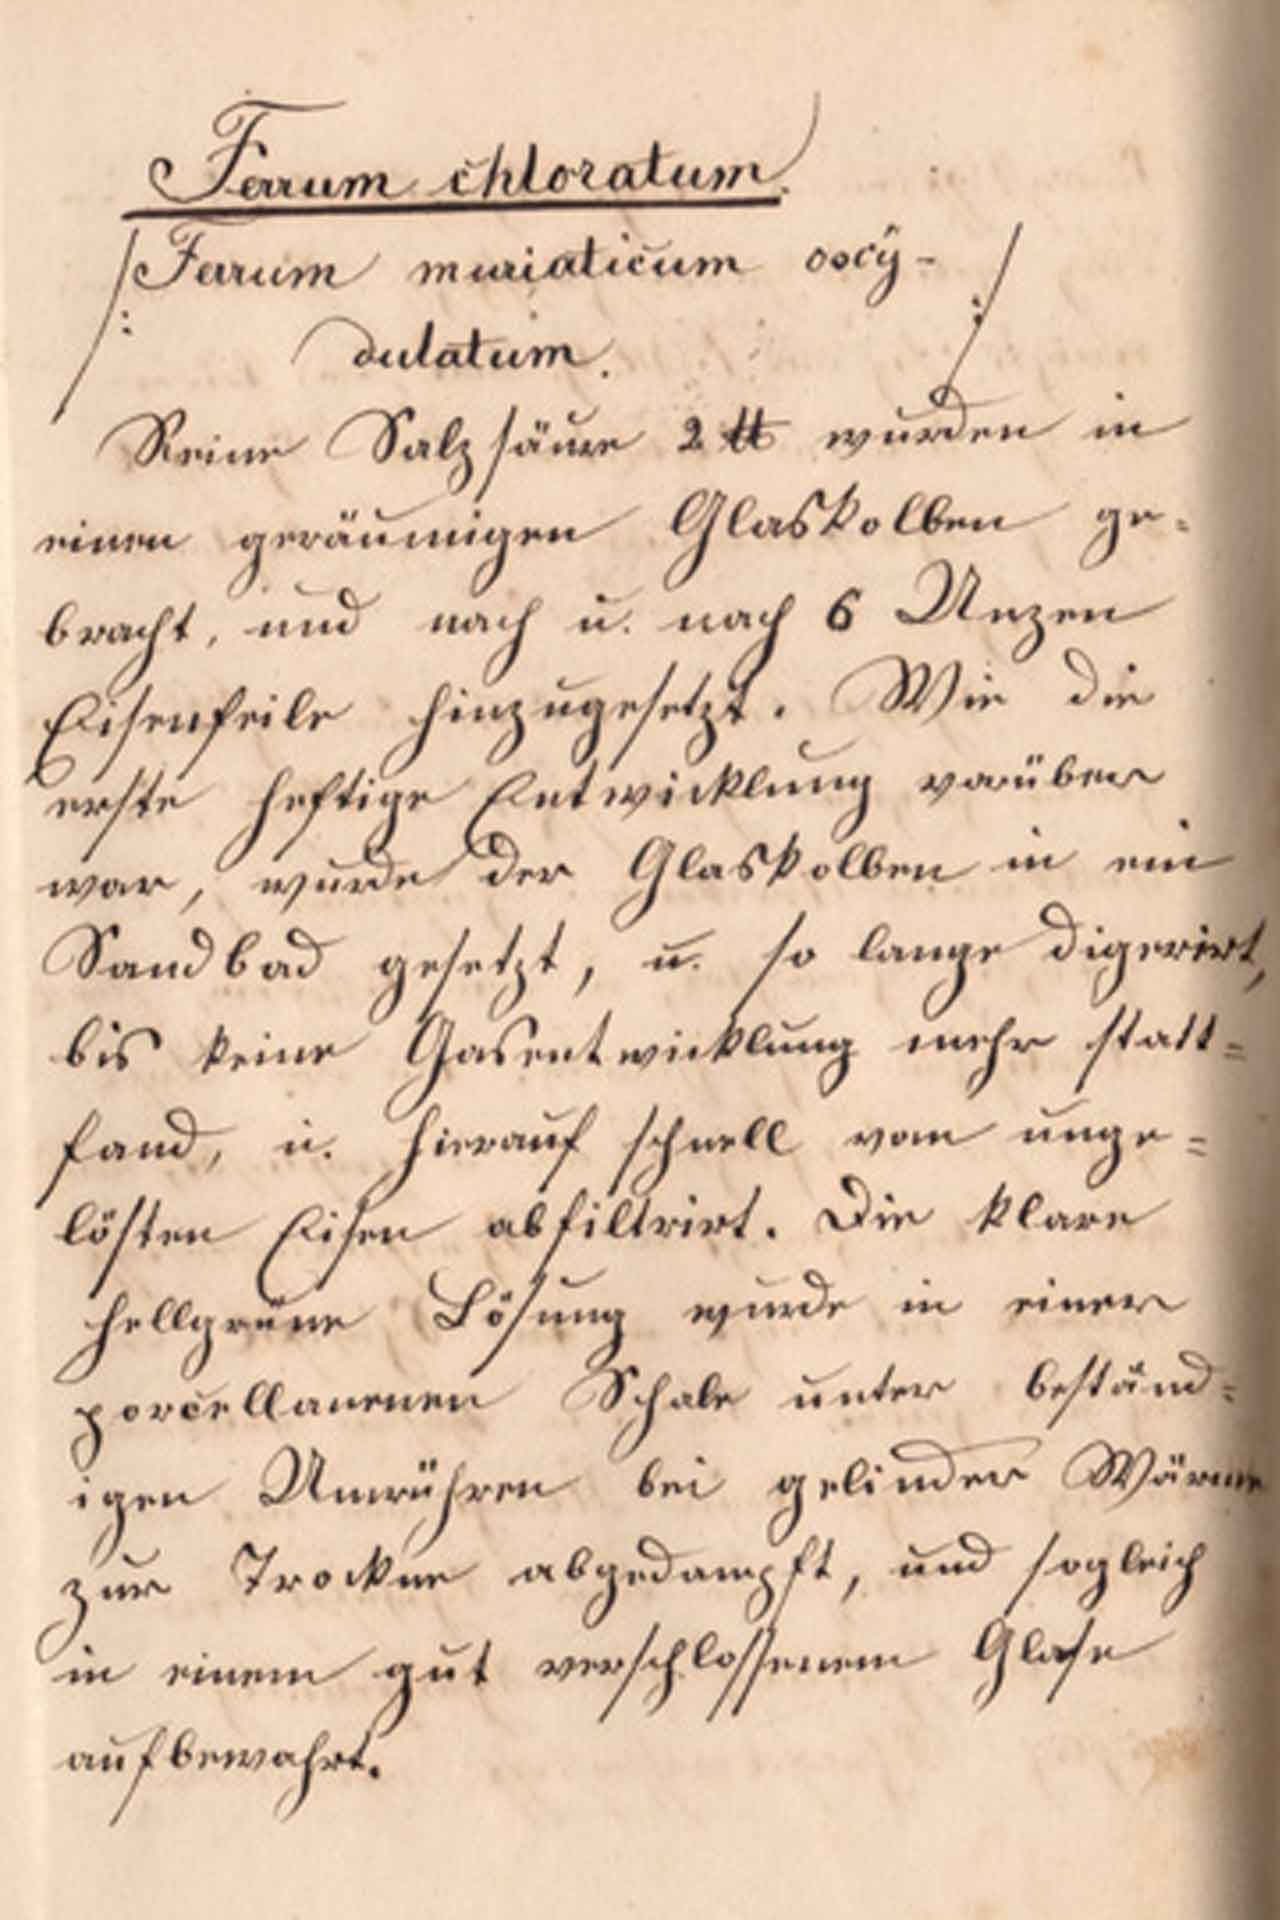 Ferrum chloratum.
/: Ferrum muriaticum oxÿ-
dulatum. :/
Reine Salzsäure 2 ℔ wurden in
einen geräumigen Glaskolben ge=
bracht, und nach u. nach 6 Unzen
Eisenfeile hinzugesetzt. Wie die
erste heftige Entwicklung vorüber
war, wurde der Glaskolben in ein
Sandbad gesetzt, u. so lange digerirt,
bis keine Gasentwicklung mehr statt=
fand, u. hierauf schnell vom unge=
lösten Eisen abfiltrirt. Die klare
hellgrüne Lösung wurde in einer
porcellanenen Schale unter beständ=
igen Umrühren bei gelinder Wärme
zur Trockne abgedampft, und sogleich
in einem gut verschlossenem Glase
aufbewahrt.